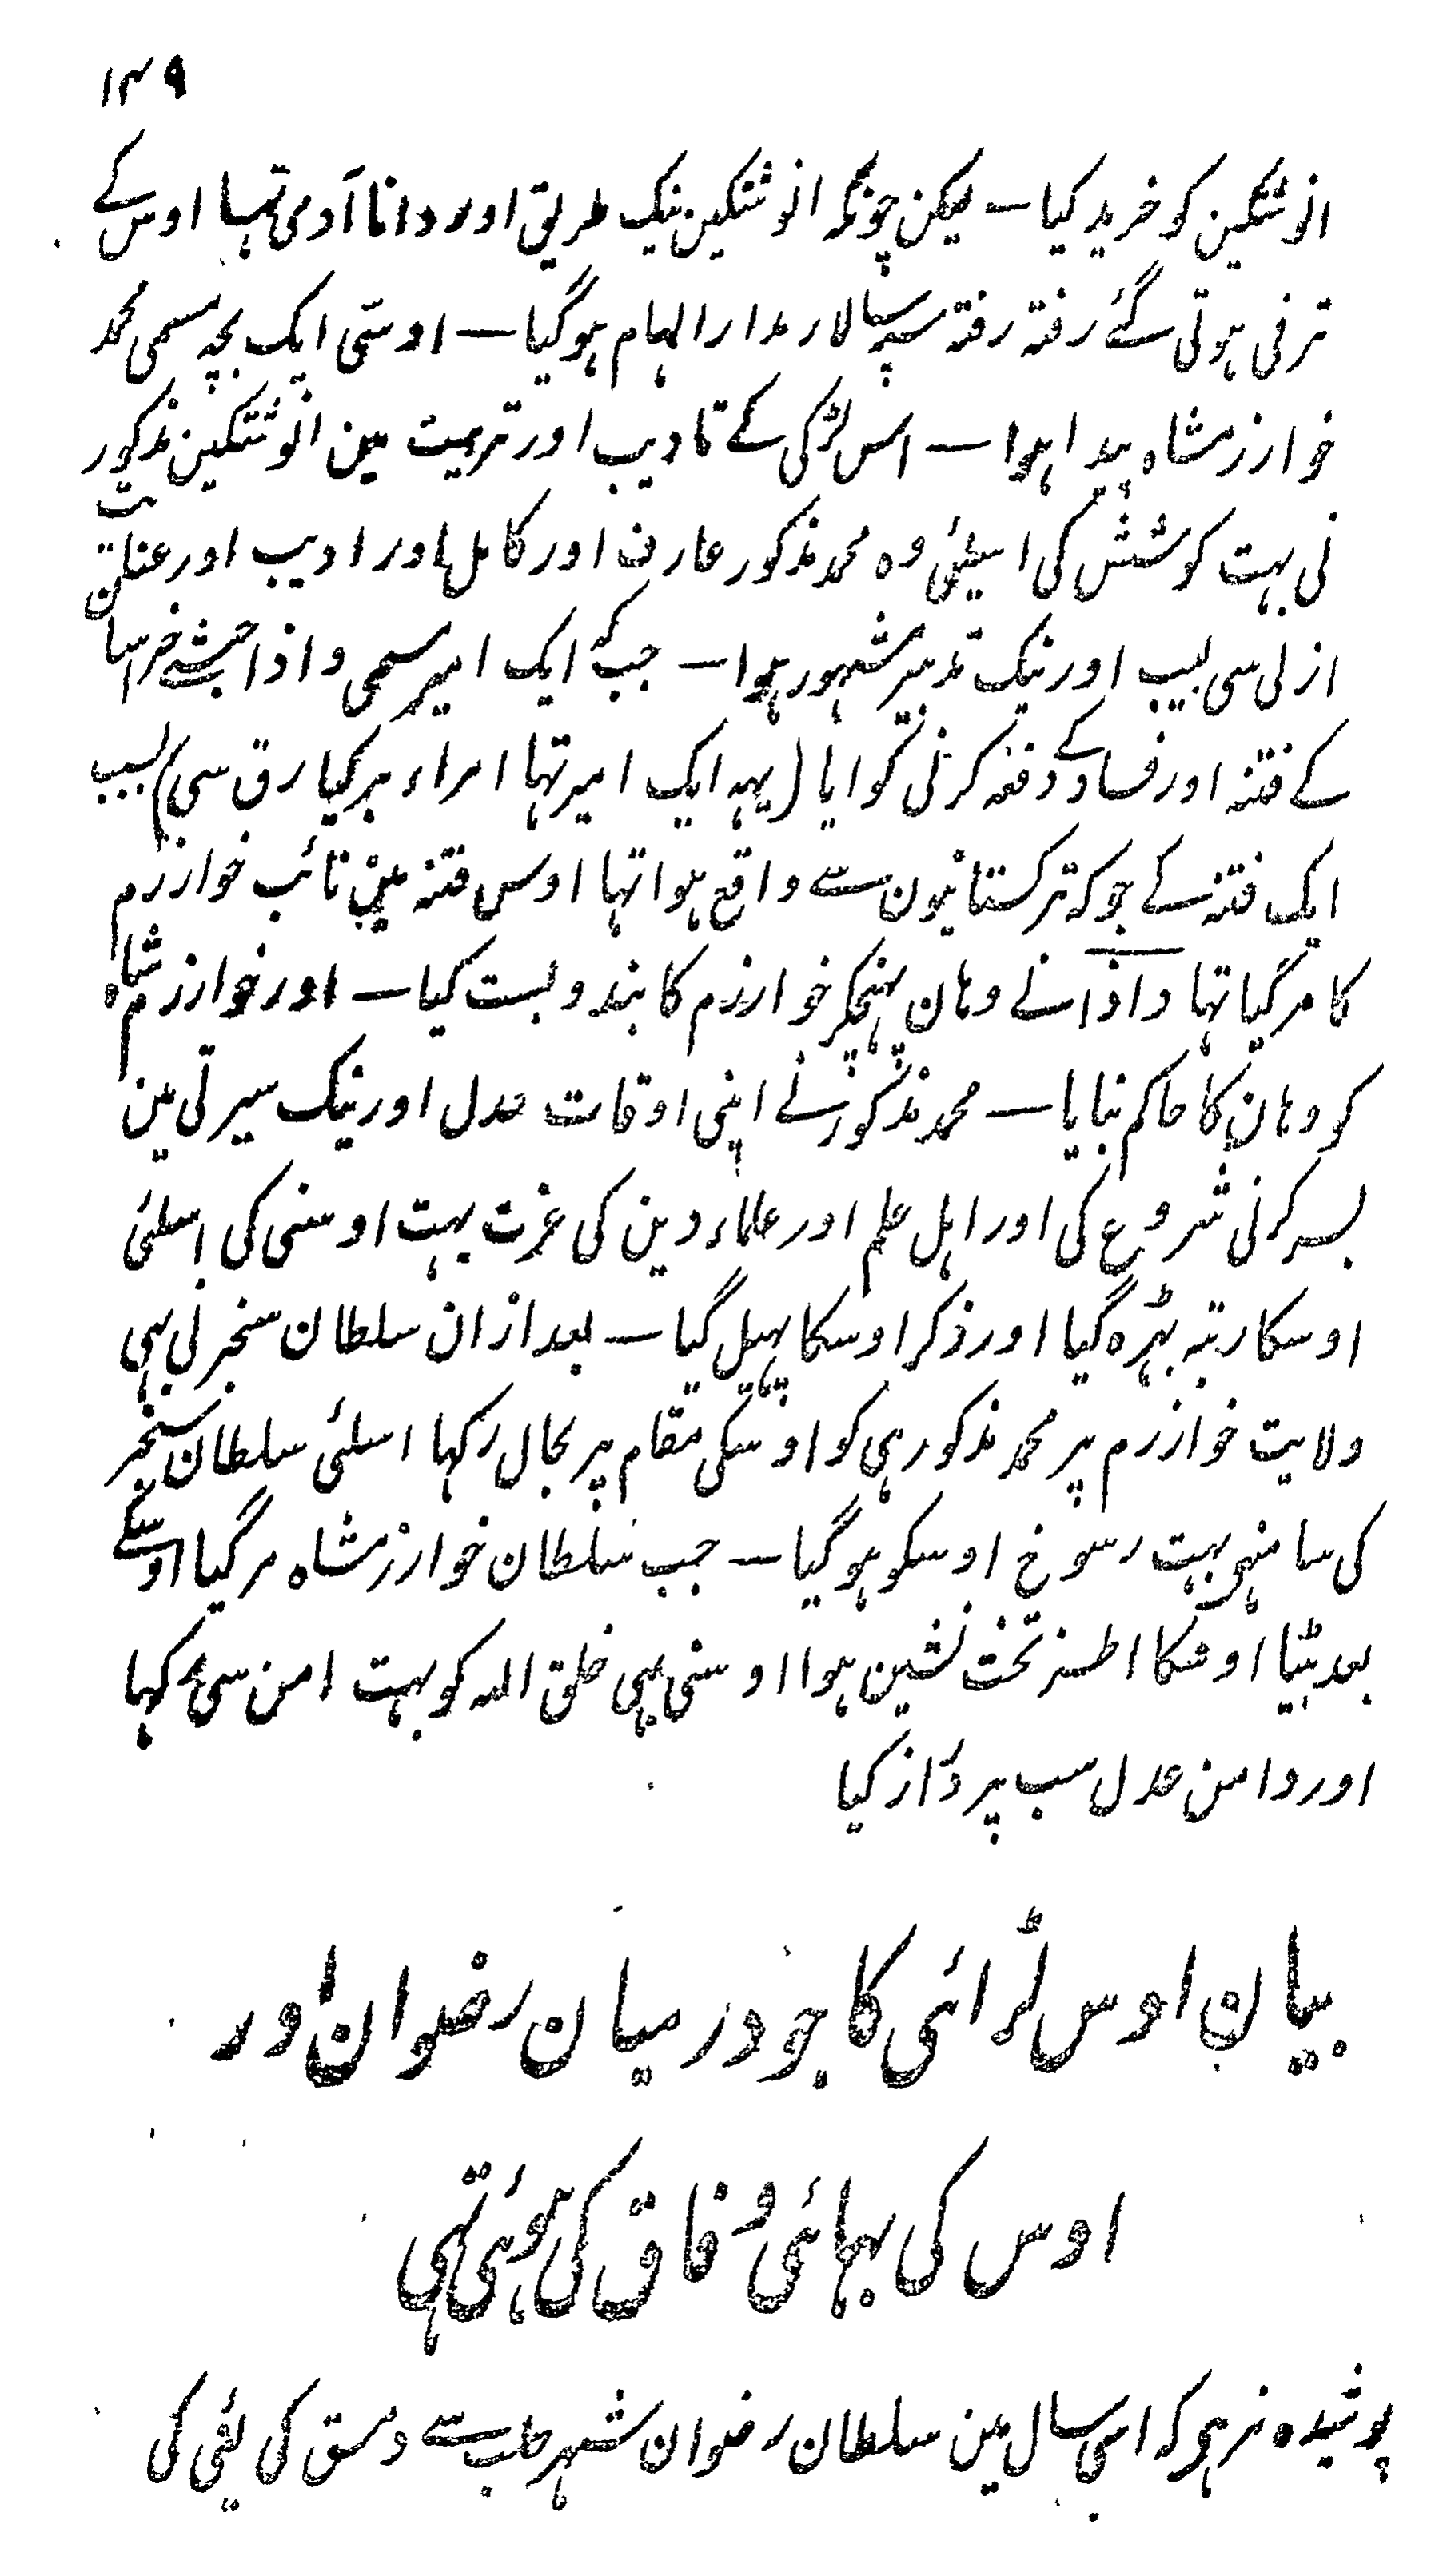 ۱۴۹
انوشتکین کو خرید کیا — لیکن چونکہ انوشتکین نیک طریق اور دانا آدمی تہا اوس کے
ترقی ہوتی گئے رفتہ رفتہ سپہ سالار مدار المہام ہوگیا — اوسی ایک بچہ مسمی محمد
خوارزمشاہ پیدا ہوا — اس لڑکی کے تادیب اور تربیت مین انوشتکین مذکور
نی بہت کوشش کی اسلیٔی وہ محمد مذکور عارف اور کامل اور ادیب اور عنایت
ازلی سی لبیب اور نیک تدبیر مشہور ہوا — جب کہ ایک امیر مسمی داذا حبشے خراسان
کے فتنہ اور فساد کے دفعہ کرنی کو ایا (یہہ ایک امیر تہا امراء برکیارق سی) بسبب
ایک فتنہ کے جوکہ ترکستانیون سے واقع ہوا تہا اوس فتنہ مین نائب خوارزم
کا مرگیا تہا داذا نے وہان پہنچکر خوارزم کا بندوبست کیا — اور خوارزم شاہ
کو وہان کا حاکم بنایا — محمد مذکور نے اپنی اوقات عدل اور نیک سیرتی مین
بسر کرنی شروع کی اور اہل علم اور علماء دین کی عزت بہت اوسنی کی اسلئی
اوسکا رتبہ بڑہ گیا اور ذکر اوسکا پہیل گیا — بعد ازان سلطان سنجر نی بہی
ولایت خوارزم پر محمد مذکور ہی کو اوسکی مقام پر بحال رکہا اسلئی سلطان سنجر
کی سامنہی بہت رسوخ اوسکو ہوگیا — جب سلطان خوارزمشاہ مرگیا اوسکے
بعد بیٹا اوسکا اطسز تخت نشین ہوا اوسنی بہی خلق اللہ کو بہت امن سی رکہا
اور دامن عدل سب پر دراز کیا
بیان اوس لڑائی کا جو درمیان رضوان اور
اوس کی بہائی دفاق کی ہوئی تہی
پوشیدہ نرہی کہ اسی سال مین سلطان رضوان شہر حلب سے دمشق کی لئی کی